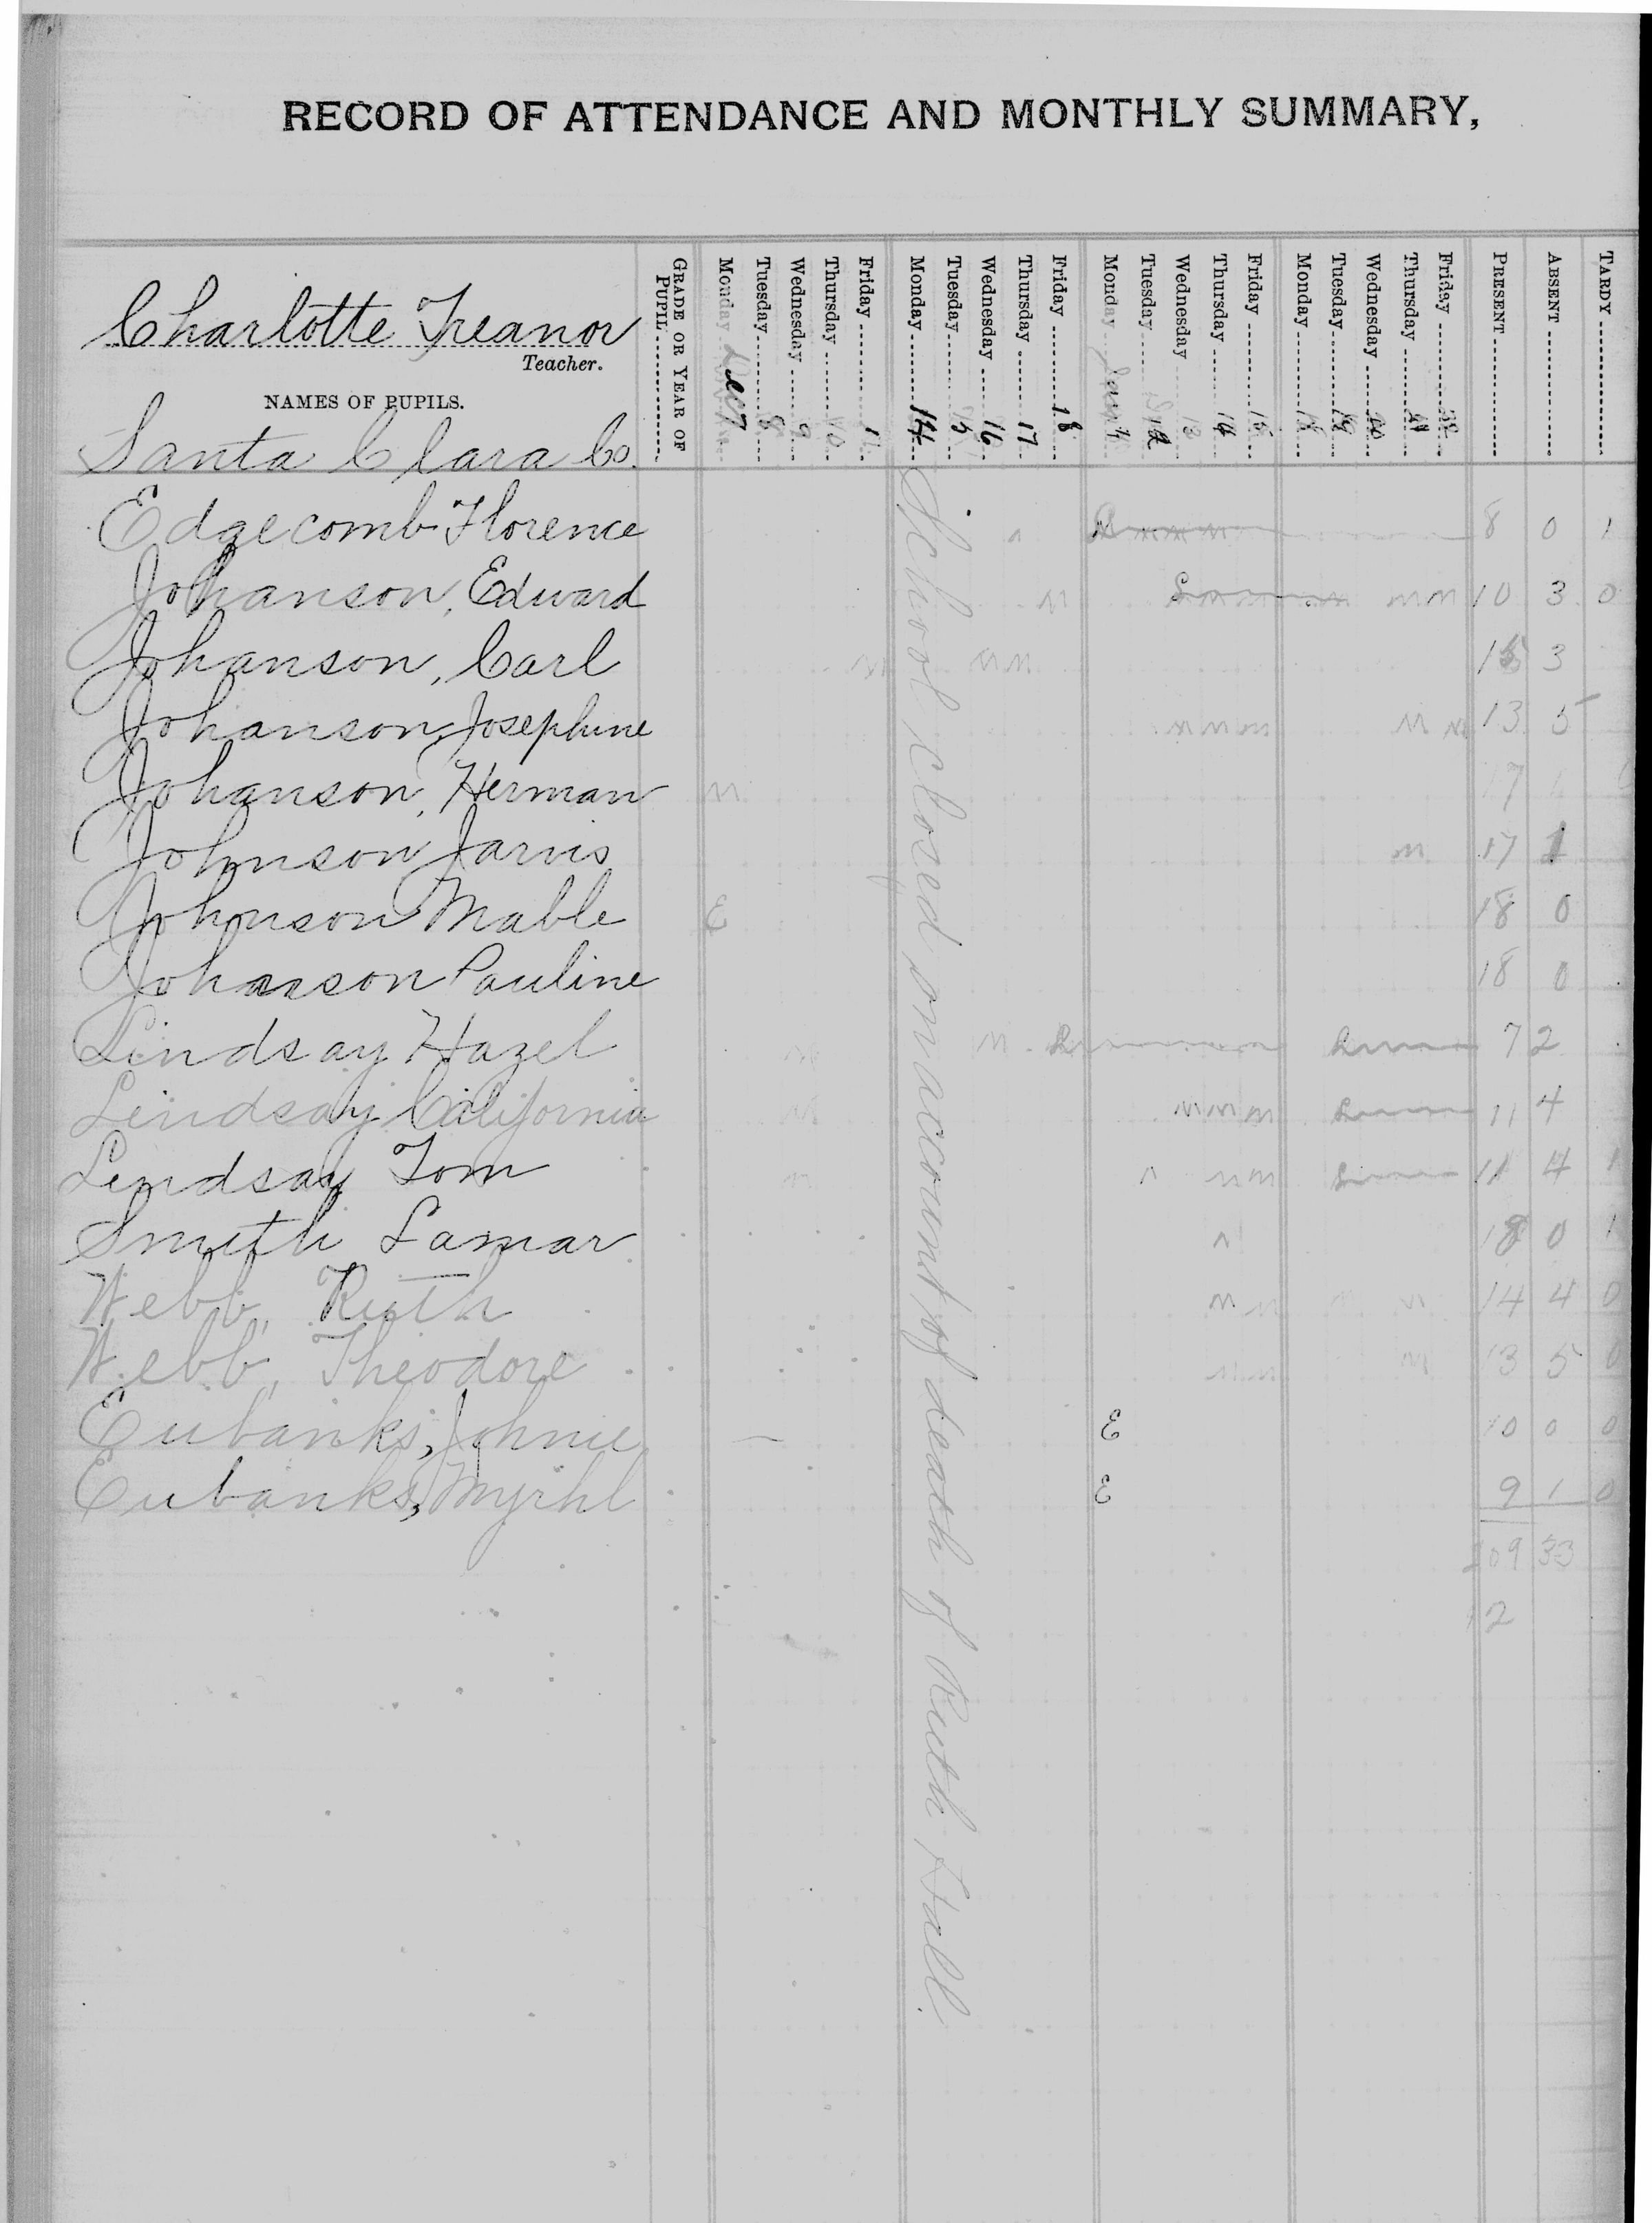 RECORD OF ATTENDANCE AND MONTHLY SUMMARY,
Charlotte Treanor
Teacher.
NAMES OF PUPILS.
Santa Clara Co.
GRADE OR YEAR OF PUPIL
Monday Dec 7
Tuesday 8
Wednesday 9
Thursday 10
Friday 11
Monday 14
Tuesday 15
Wednesday 16
Thursday 17
Friday 18
Monday
Tuesday 12
Wednesday 13
Thursday 14
Friday 15
Monday 18
Tuesday 19
Wednesday 20
Thursday 21
Friday
PRESENT
ABSENT
TARDY
School closed on account of death of Ruth Hall.
Edgecomb Florence 8 0 1
Johanson, Edward 10 3 0
Johanson, Carl 15 3
Johanson, Josephine 13 5
Johanson, Herman 17
Johnson Jarvis 17 1
Johnson Mable E 18 0
Johanson Pauline 18 0
Lindsay Hazel 7 2
Lindsay California 11 4
Lindsay Tom 11 4 1
Smith Lamar 18 0 1
Webb, Ruth 14 4 0
Webb, Theodore 13 5 0
Eubanks, Johnie E 10 0 0
Eubanks, Myrhl E 9 1 0
209 33
12